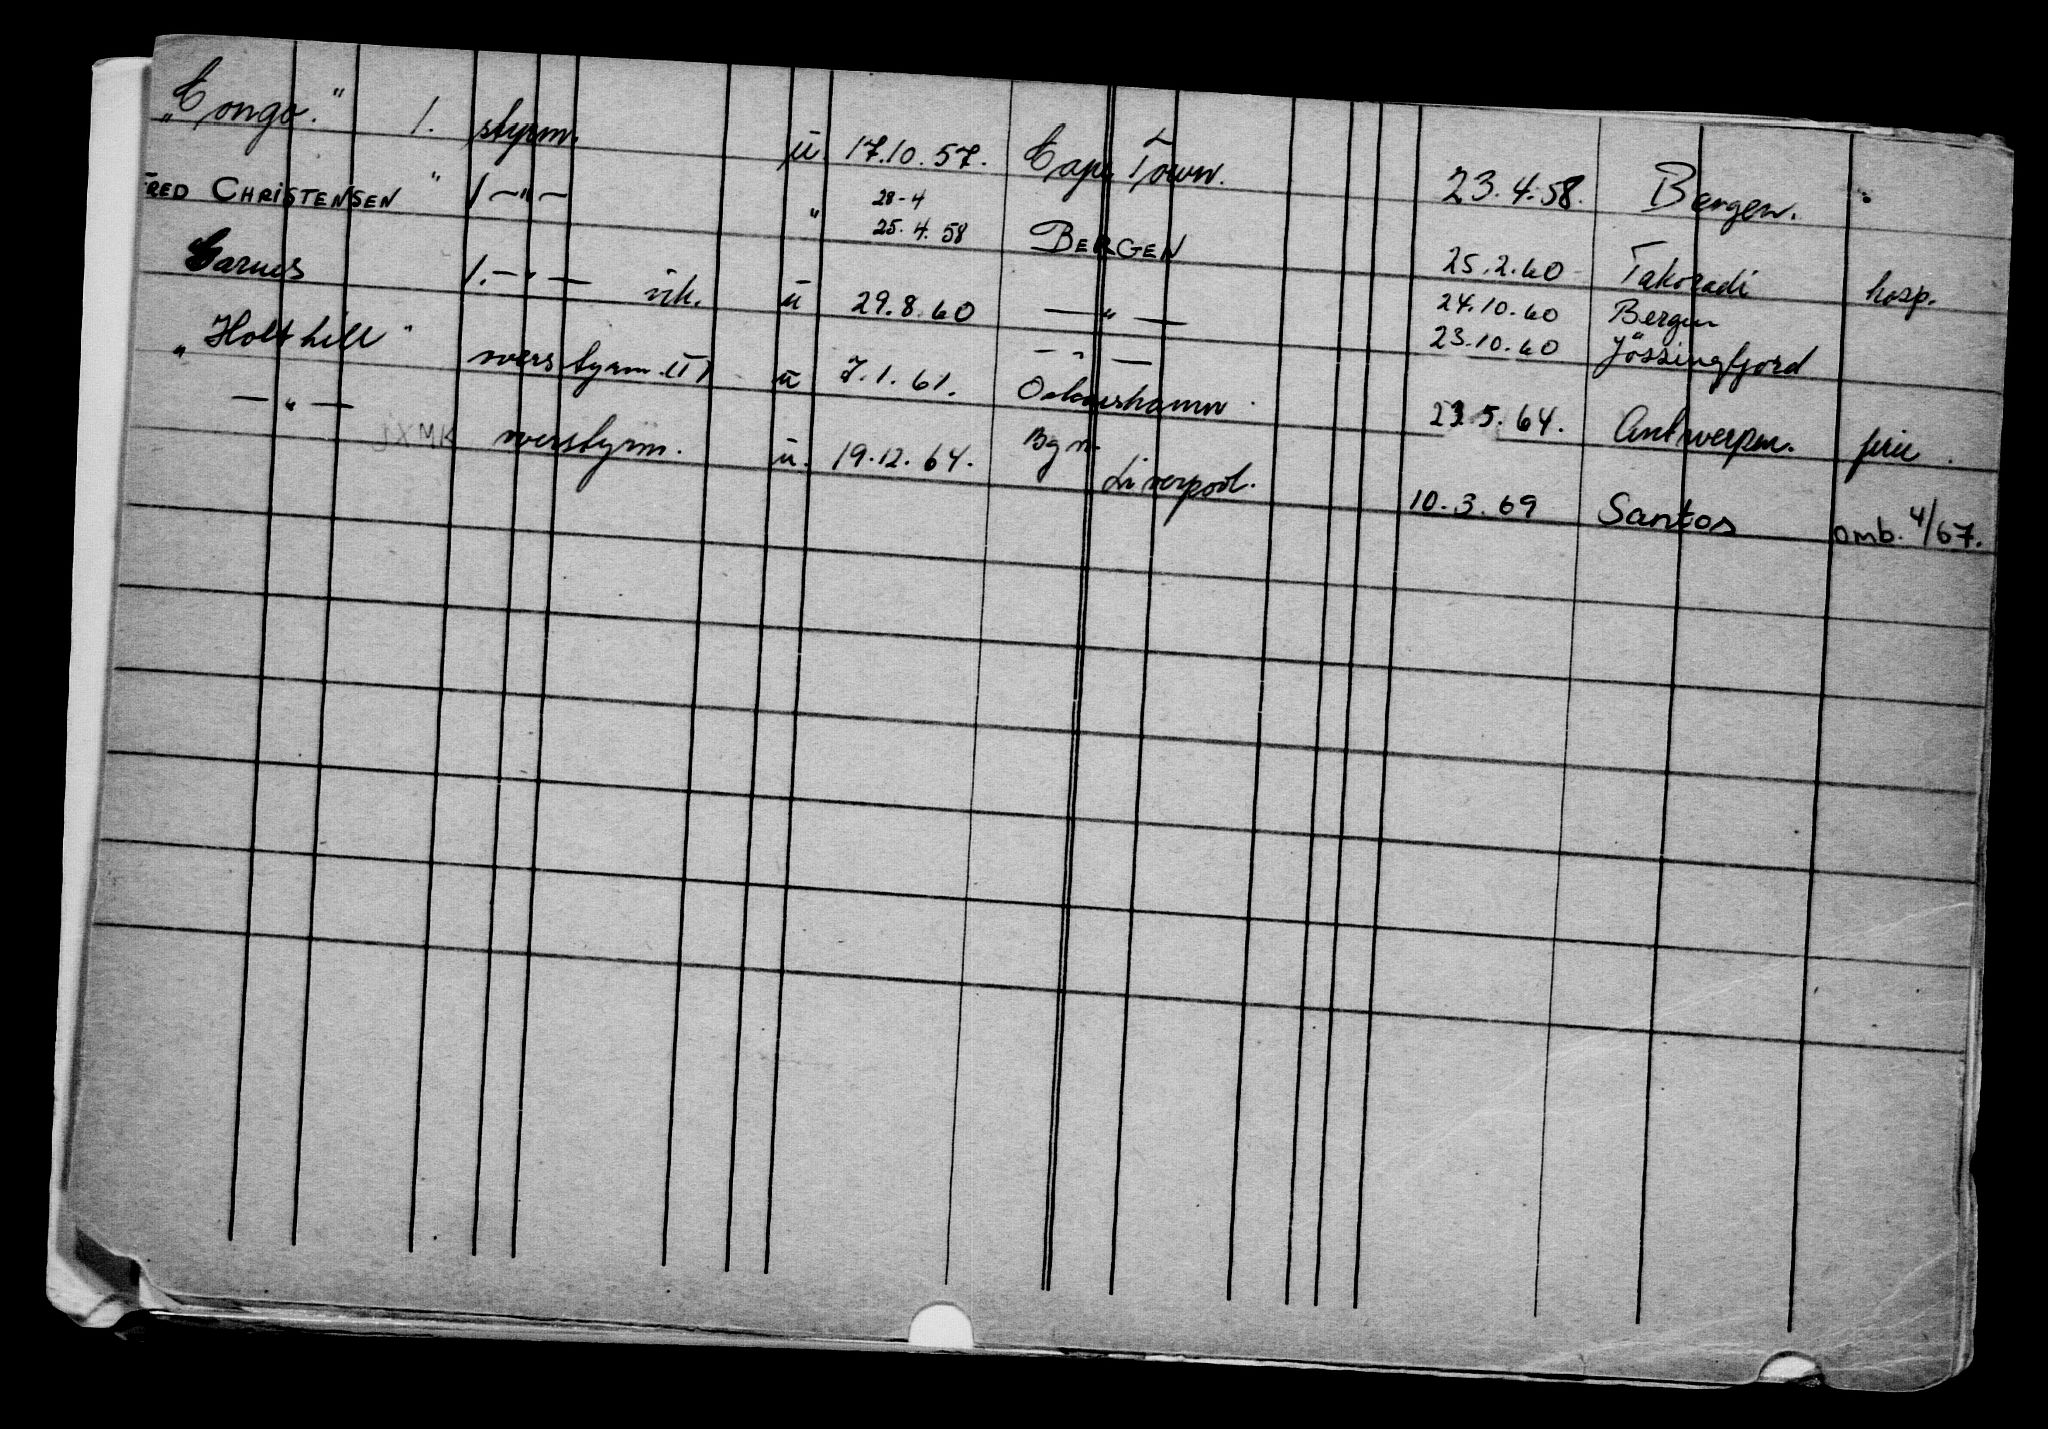 „Congo." 1. styrm. u. 17.10.57. Cape Town. 23.4.58. Bergen. "
FRED CHRISTENSEN " 1 —"— " 28-4 25.4.58 BERGEN 25.2.60 Takoradi hosp.
Garnes 1.—"— vik. u 29.8.60 —"— 24.10.60 Bergen
—"— 23.10.60 Jössingfjord
„Holthill" overstyrm. (I) u 7.1.61. Oskarshamn 23.5.64. Antwerpen. ferie.
—"— JXMK overstyrm. u. 19.12.64. Bgn. Liverpool. 10.3.69 Santos omb. 4/67.